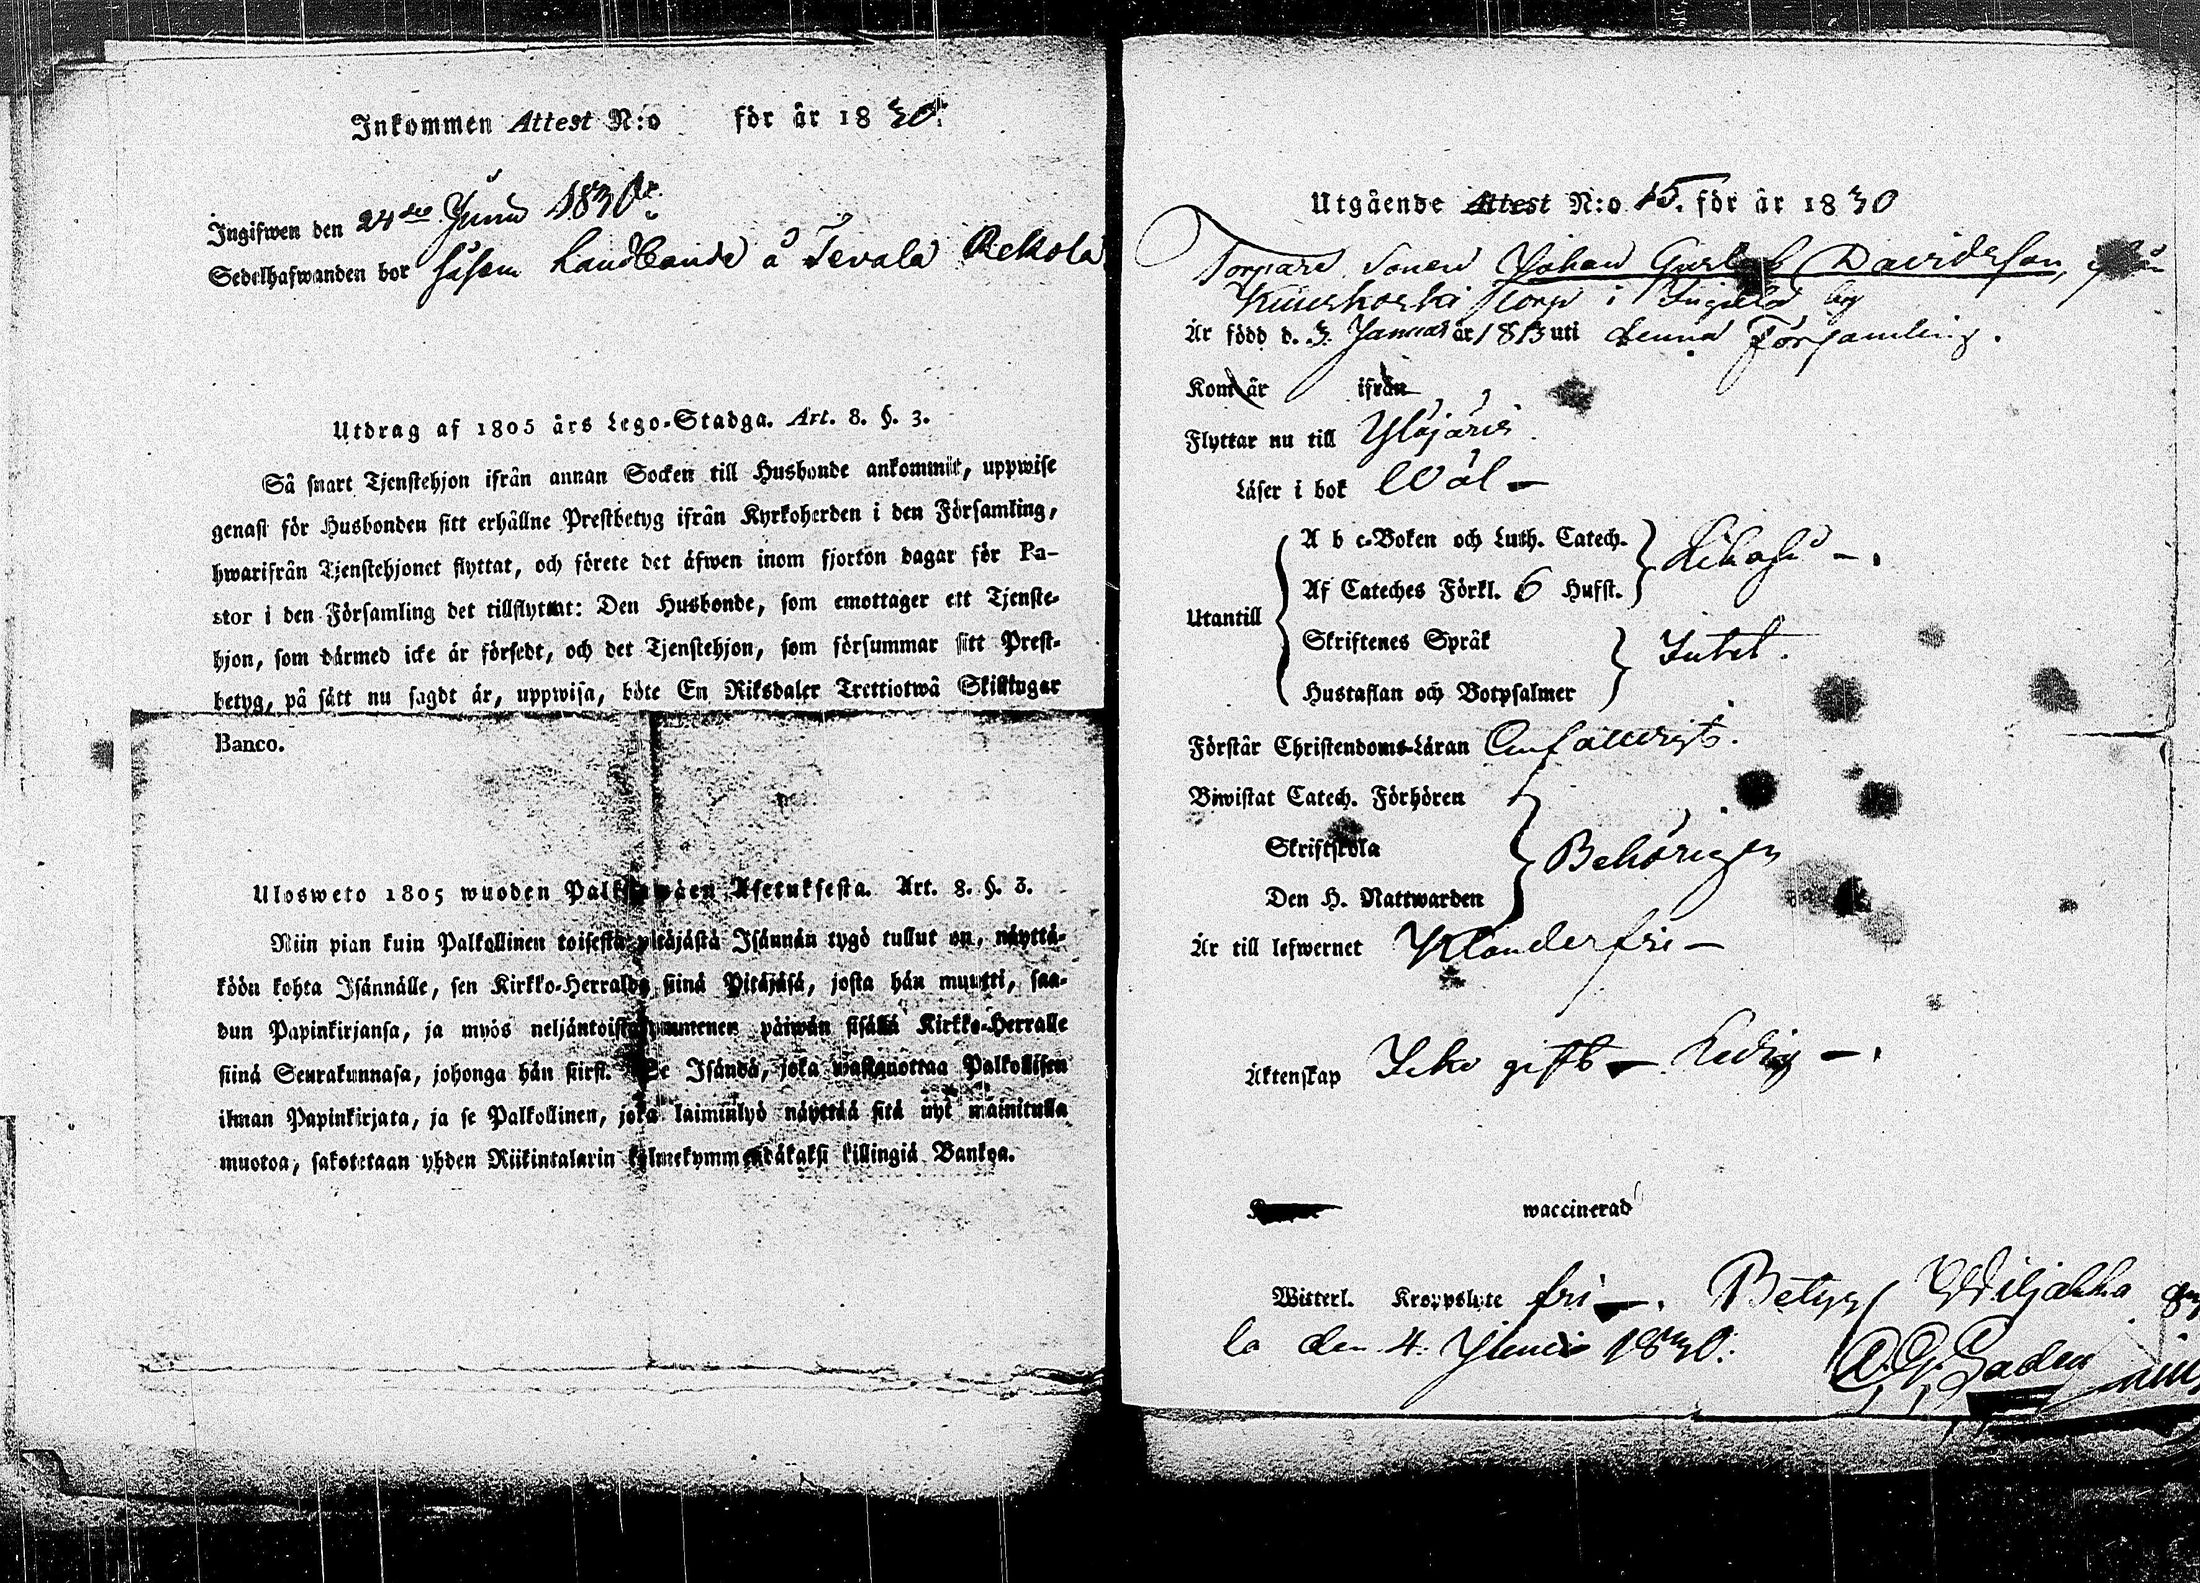 Inkommen Attest N:o för år 1830.
Ingifwen den 24de Junii 1830.
Sedelhafwanden bor såsom Landbonde å Tevala Rekola
Utdrag af 1805 års Lego-Stadga. Art. 8. §. 3.
Så snart Tjenstehjon ifrån annan Socken till Husbonde ankommit, uppwise
genast för Husbonden sitt erhållne Prestbetyg ifrån Kyrkoherden i den Församling,
hwarifrån Tjenstehjonet flyttat, och förete det äfwen inom fjorton dagar för Pa-
stor i den Församling det tillflyttat: Den Husbonde, som emottager ett Tjenste-
hjon, som därmed icke är försedt, och det Tjenstehjon, som försummar sitt Prest-
betyg, på sätt nu sagdt är, uppwisa, böte En Riksdaler Trettiotwå Skillingar
Banco.
Ulosweto 1805 wuoden Palkkawäen Asetuksesta. Art. 8. §. 3.
Niin pian kuin Palkollinen toisesta pitäjästä Isännän tygö tullut on, näyttä-
köön kohta Isännälle, sen Kirkko-Herralda siinä Pitäjäsä, josta hän muutti, saa-
dun Papinkirjansa, ja myös neljäntoistakymmenen päiwän sisällä Kirkko-Herralle
siinä Seurakunnasa, johonga hän siirsi. Se Isändä, joka wastanottaa Palkollisen
ilman Papinkirjata, ja se Palkollinen, joka laiminlyö näyttää sitä nyt mainitulla
muotoa, sakotetaan yhden Riikintalarin kolmekymmendäkaksi killingiä Bankoa.
Utgående Attest N:o 15. för år 1830
Torpare Sonen Johan Gustaf Davidsson, ifrån
torp i by
Är född d. 3. Januar år 1813 uti denna Församling.
Kom år ifrån
Flyttar nu till Ylöjärvi
Läser i bok Wäl –
Utantill
A b c-Boken och Luth. Catech.
Af Cateches Förkl. 6 Hufst.
Likaså – .
Skriftenes Språk
Hustaflan och Botpsalmer
Intet.
Förstår Christendoms-Läran Enfalldigt.
Biwistat Catech. Förhören
Skriftskola
Den H. Nattwarden
Behörigen
Är till lefwernet Klanderfri –
Äktenskap Icke gift – Ledig – .
waccinerad
Witterl. Kroppslyte fri – . Betyg Wiljakka
la den 4. Junii 1830.